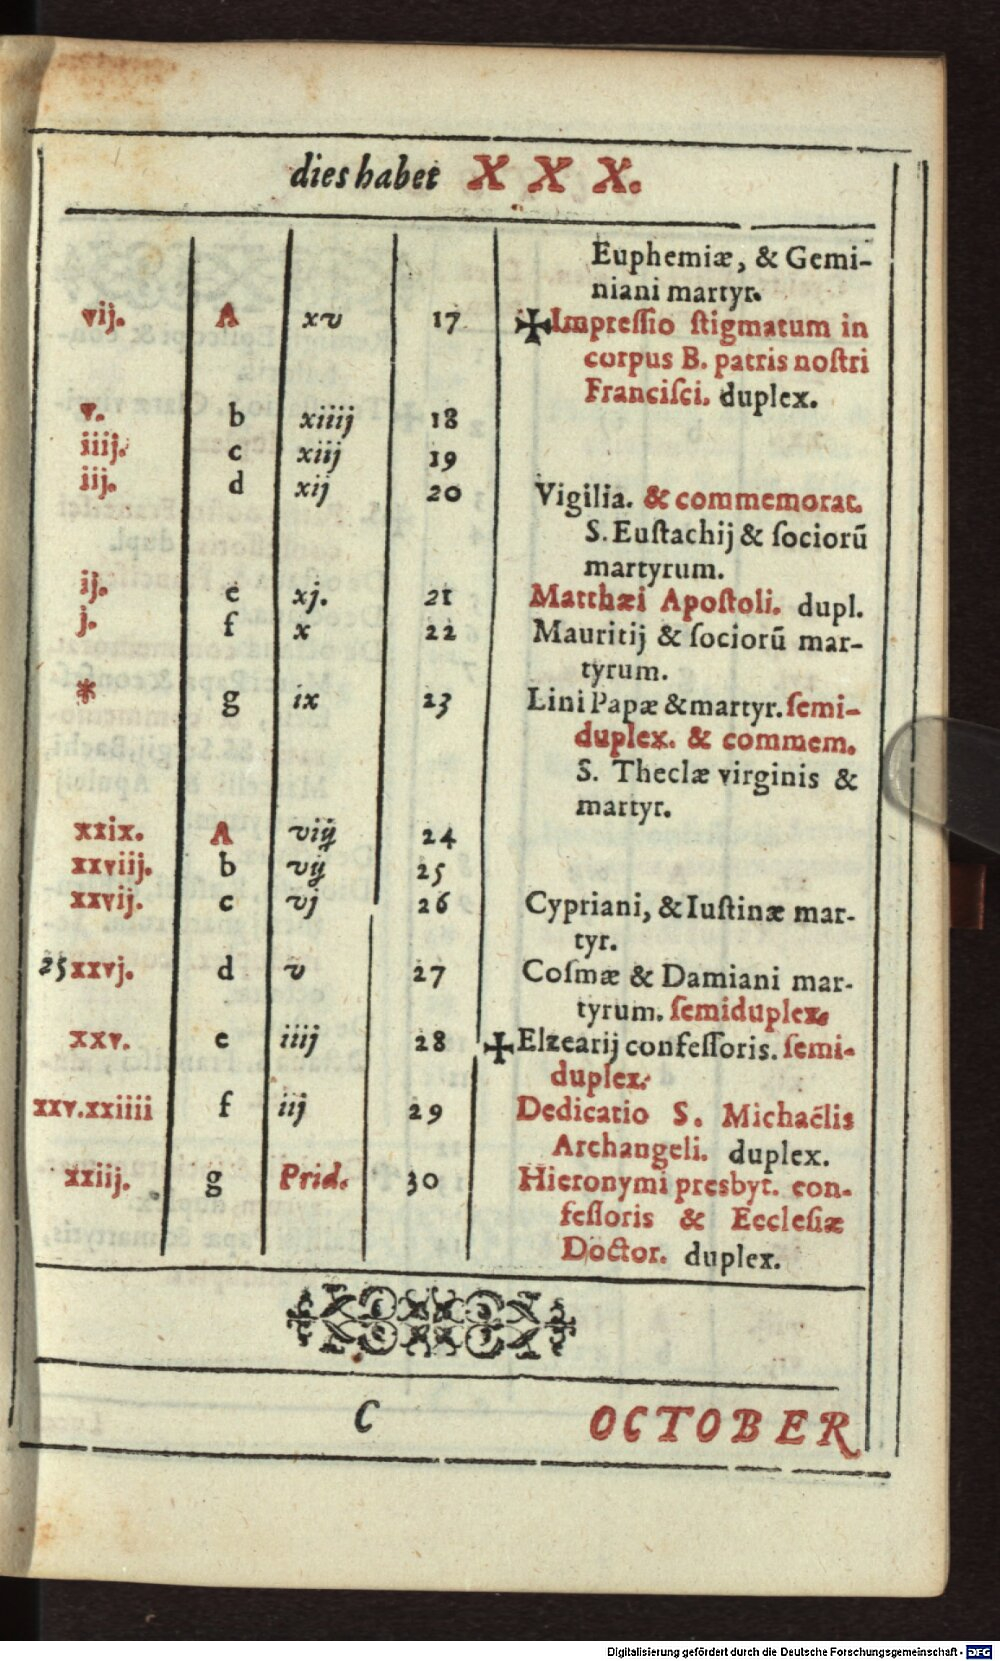 dies habet X X X.
Euphemiæ, & Gemi-
niani martyr.
vij. A xv 17 ✠Impreſſio ſtigmatum in
corpus B. patris noſtri
Franciſci. duplex.
v. b xiiij 18
iiij. c xiij 19
iij. d xij 20 Vigilia. & commemorat.
S. Euſtachij & ſociorū
martyrum.
ij. e xj. 21 Matthæi Apoſtoli. dupl.
j. f x 22 Mauritij & ſociorū mar-
tyrum.
* g ix 23 Lini Papæ & martyr. ſemi-
duplex. & commem.
S. Theclæ virginis &
martyr.
xxix. A viij 24
xxviij. b vij 25
xxvij. c vj 26 Cypriani, & Iuſtinæ mar-
tyr.
25 xxvj. d v 27 Coſmæ & Damiani mar-
tyrum. ſemiduplex.
xxv. e iiij 28 ✠Elzearij confeſſoris. ſemi-
duplex.
xxv.xxiiii f iij 29 Dedicatio S. Michaëlis
Archangeli. duplex.
xxiij. g Prid. 30 Hieronymi presbyt. con-
feſſoris & Eccleſiæ
Doctor. duplex.
C OCTOBER
Digitalisierung gefördert durch die Deutsche Forschungsgemeinschaft - DFG